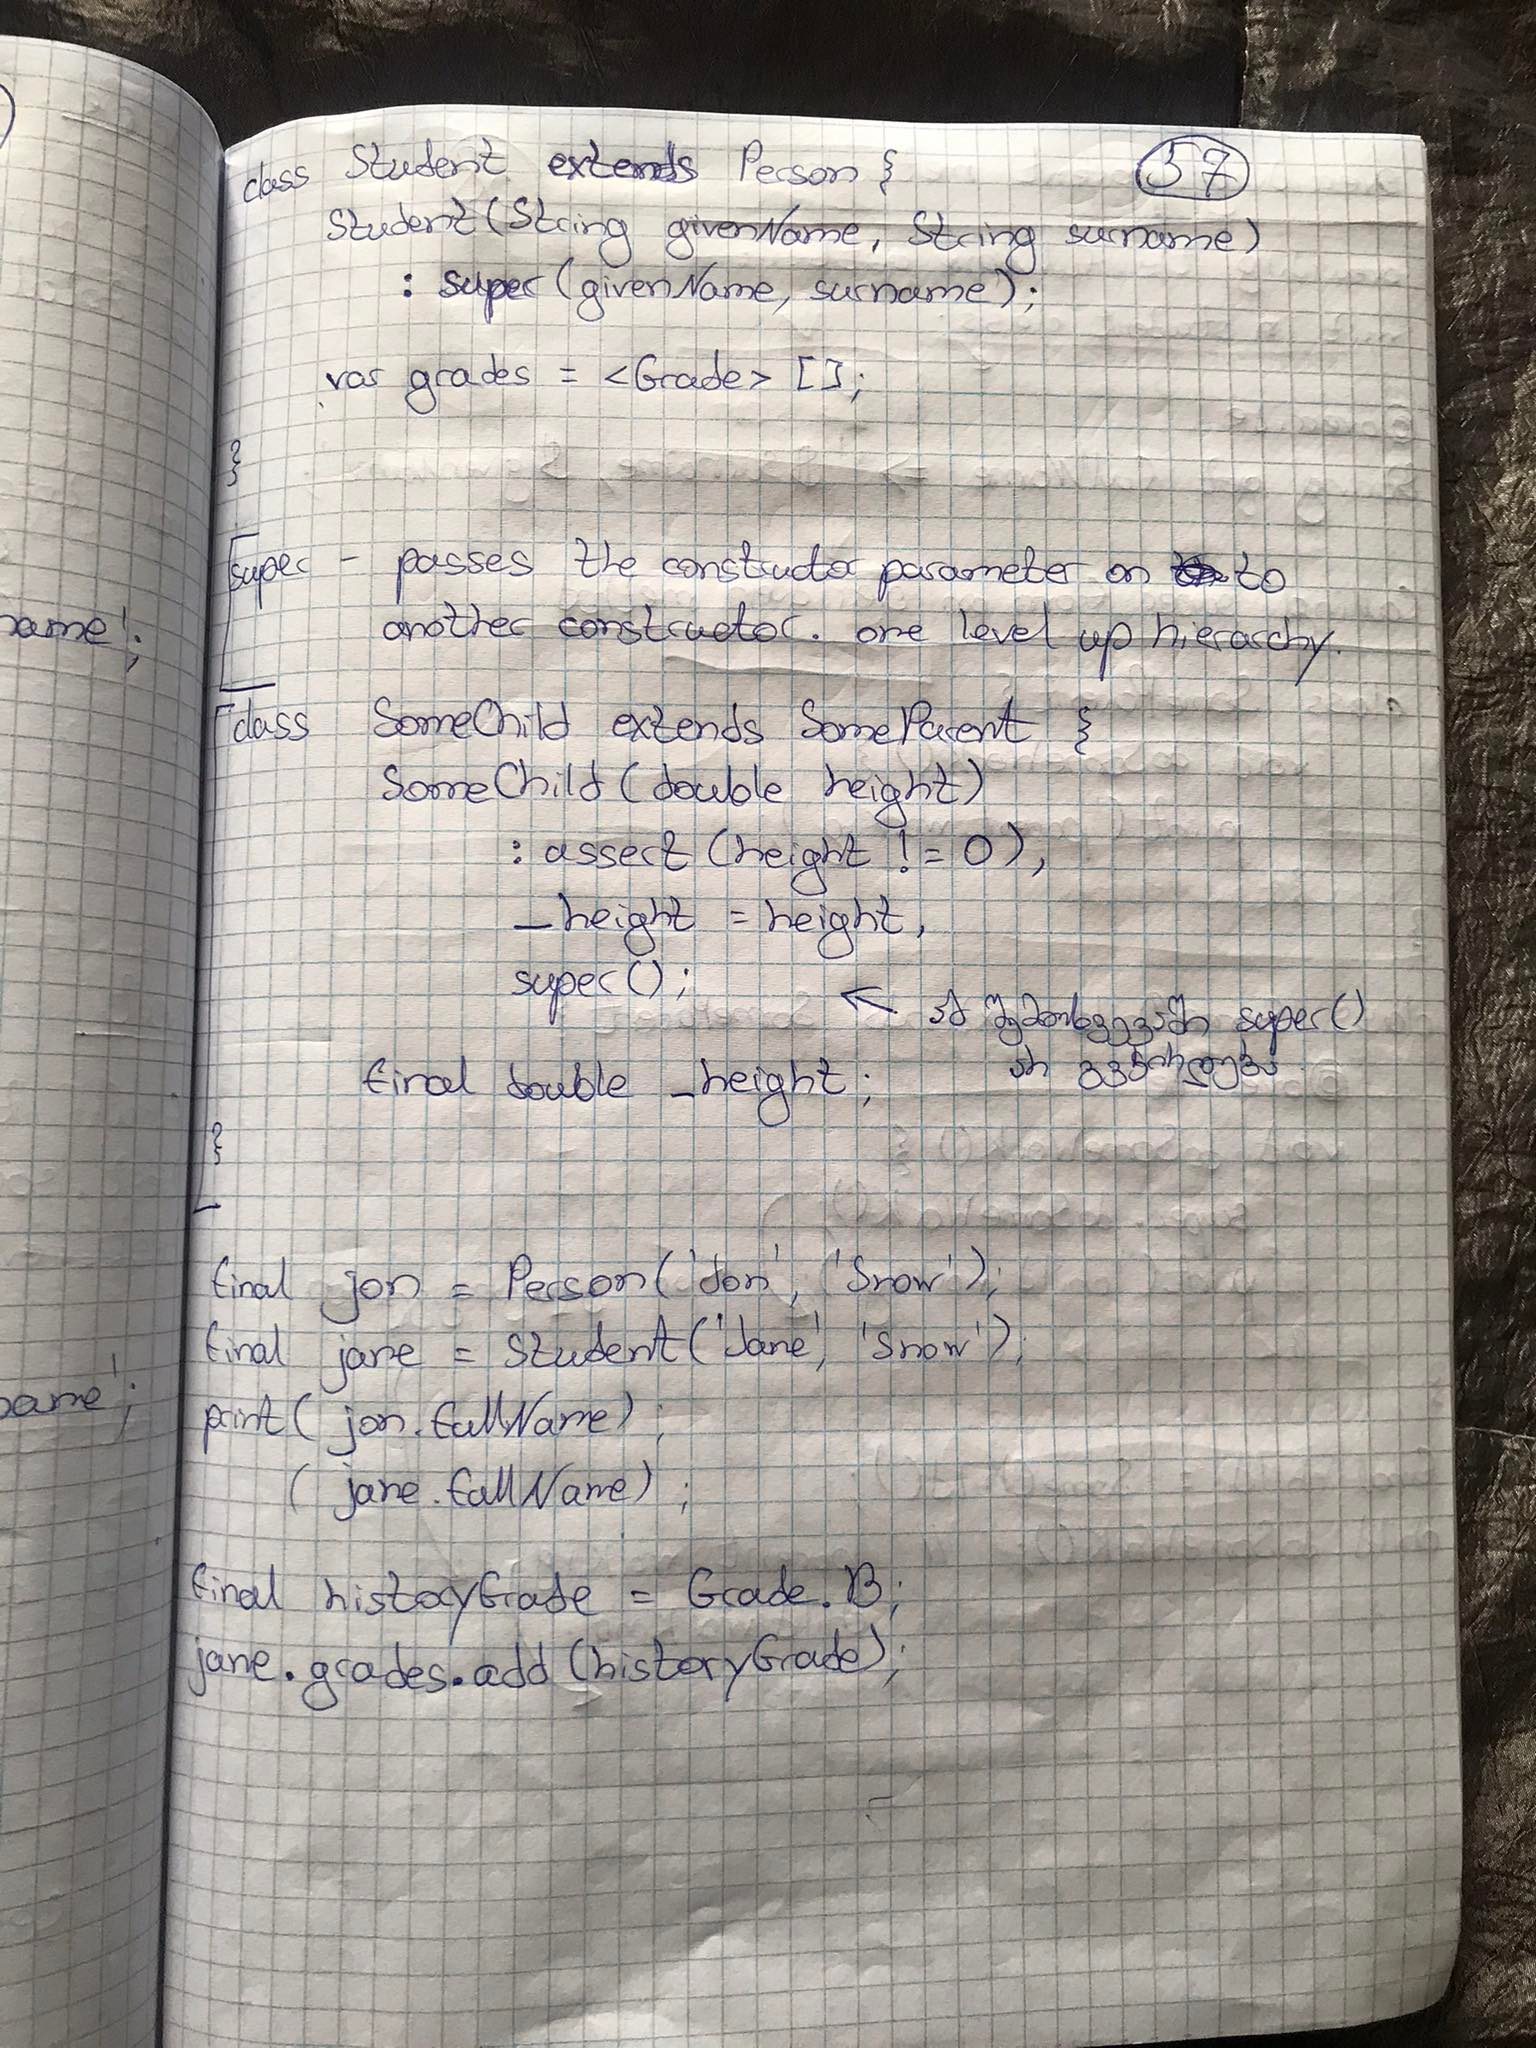 57
class Student extends Person {
Student(String givenName, String surname)
: super(givenName, surname);
var grades = <Grade> [];
}
super - passes the constructor parameter on to
another constructor. one level up hierarchy.
class SomeChild extends SomeParent {
SomeChild(double height)
: assert(height != 0),
_height = height,
super();
← ამ შემთხვევაში super()
არ გვჭირდება
final double _height;
}
final jon = Person('Jon', 'Snow');
final jane = Student('Jane', 'Snow');
print( jon.fullName) ;
( jane.fullName) ;
final historyGrade = Grade.B;
jane.grades.add(historyGrade);
name';
name';